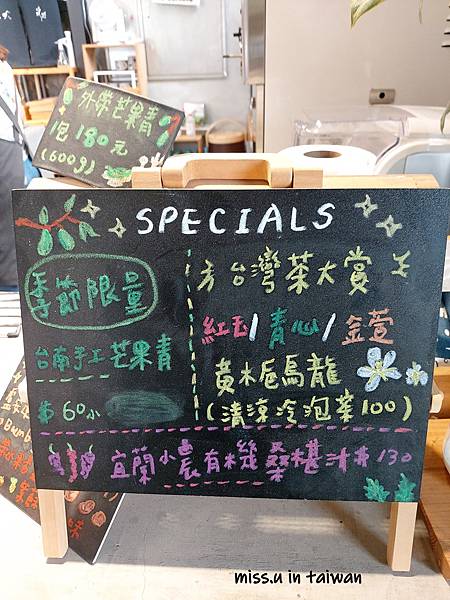 外帶芒果青
1包 180元
(600g)
SPECIALS
季節限量
台南手工芒果青
$60/小
台灣茶大賞
紅玉/青心/金萱
黃木梔烏龍
(清涼冷泡茶100)
宜蘭小農有機桑椹汁 130
miss.u in taiwan